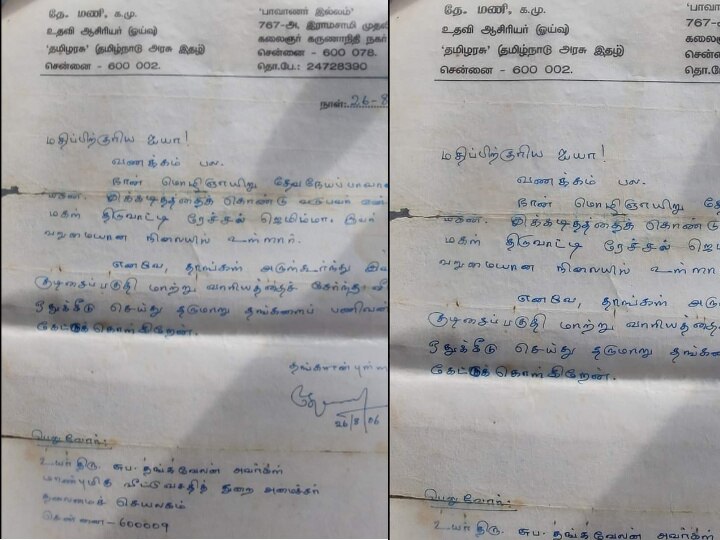 தே. மணி, க.மு.
உதவி ஆசிரியர் (ஓய்வு)
'தமிழரசு' (தமிழ்நாடு அரசு இதழ்)
சென்னை - 600 002.
'பாவாணர் இல்லம்'
767-அ, இராமசாமி முதலி
கலைஞர் கருணாநிதி நகர்
சென்னை - 600 078.
தொ.பே.: 24728390
நாள்: 26-8
மதிப்பிற்குரிய ஐயா!
வணக்கம் பல.
நான் மொழிஞாயிறு தேவநேயப் பாவா
மகன். இக்கடிதத்தைக் கொண்டு வருபவர் என்
மகள் திருவாட்டி ரேச்சல் ஜெமிம்மா. இவர்
வறுமையான நிலையில் உள்ளார்.
எனவே, தாங்கள் அருள்கூர்ந்து இவ
குடிசைப்பகுதி மாற்று வாரியத்தைச் சேர்ந்த வீ
ஒதுக்கீடு செய்து தருமாறு தங்களைப் பணிவன்
கேட்டுக்கொள்கிறேன்.
தங்களன்புள்ள
26/8/06
பெறுவோர்:
உயர்திரு. சுப. தங்கவேலன் அவர்கள்
மாண்புமிகு வீட்டுவசதித் துறை அமைச்சர்
தலைமைச் செயலகம்
சென்னை - 600009
தே. மணி, க.மு.
உதவி ஆசிரியர் (ஓய்வு)
'தமிழரசு' (தமிழ்நாடு அரசு இதழ்)
சென்னை - 600 002.
'பாவாண
767-அ
கலைஞ
சென்னை
தொ.பே
மதிப்பிற்குரிய ஐயா!
வணக்கம் பல.
நான் மொழிஞாயிறு தே
மகன். இக்கடிதத்தைக் கொண்டு
மகள் திருவாட்டி ரேச்சல் ஜெமி
வறுமையான நிலையில் உள்ளார்
எனவே, தாங்கள் அரு
குடிசைப்பகுதி மாற்று வாரியத்தை
ஒதுக்கீடு செய்து தருமாறு தங்களை
கேட்டுக்கொள்கிறேன்.
பெறுவோர்:
உயர்திரு. சுப. தங்கவேலன் அவர்கள்